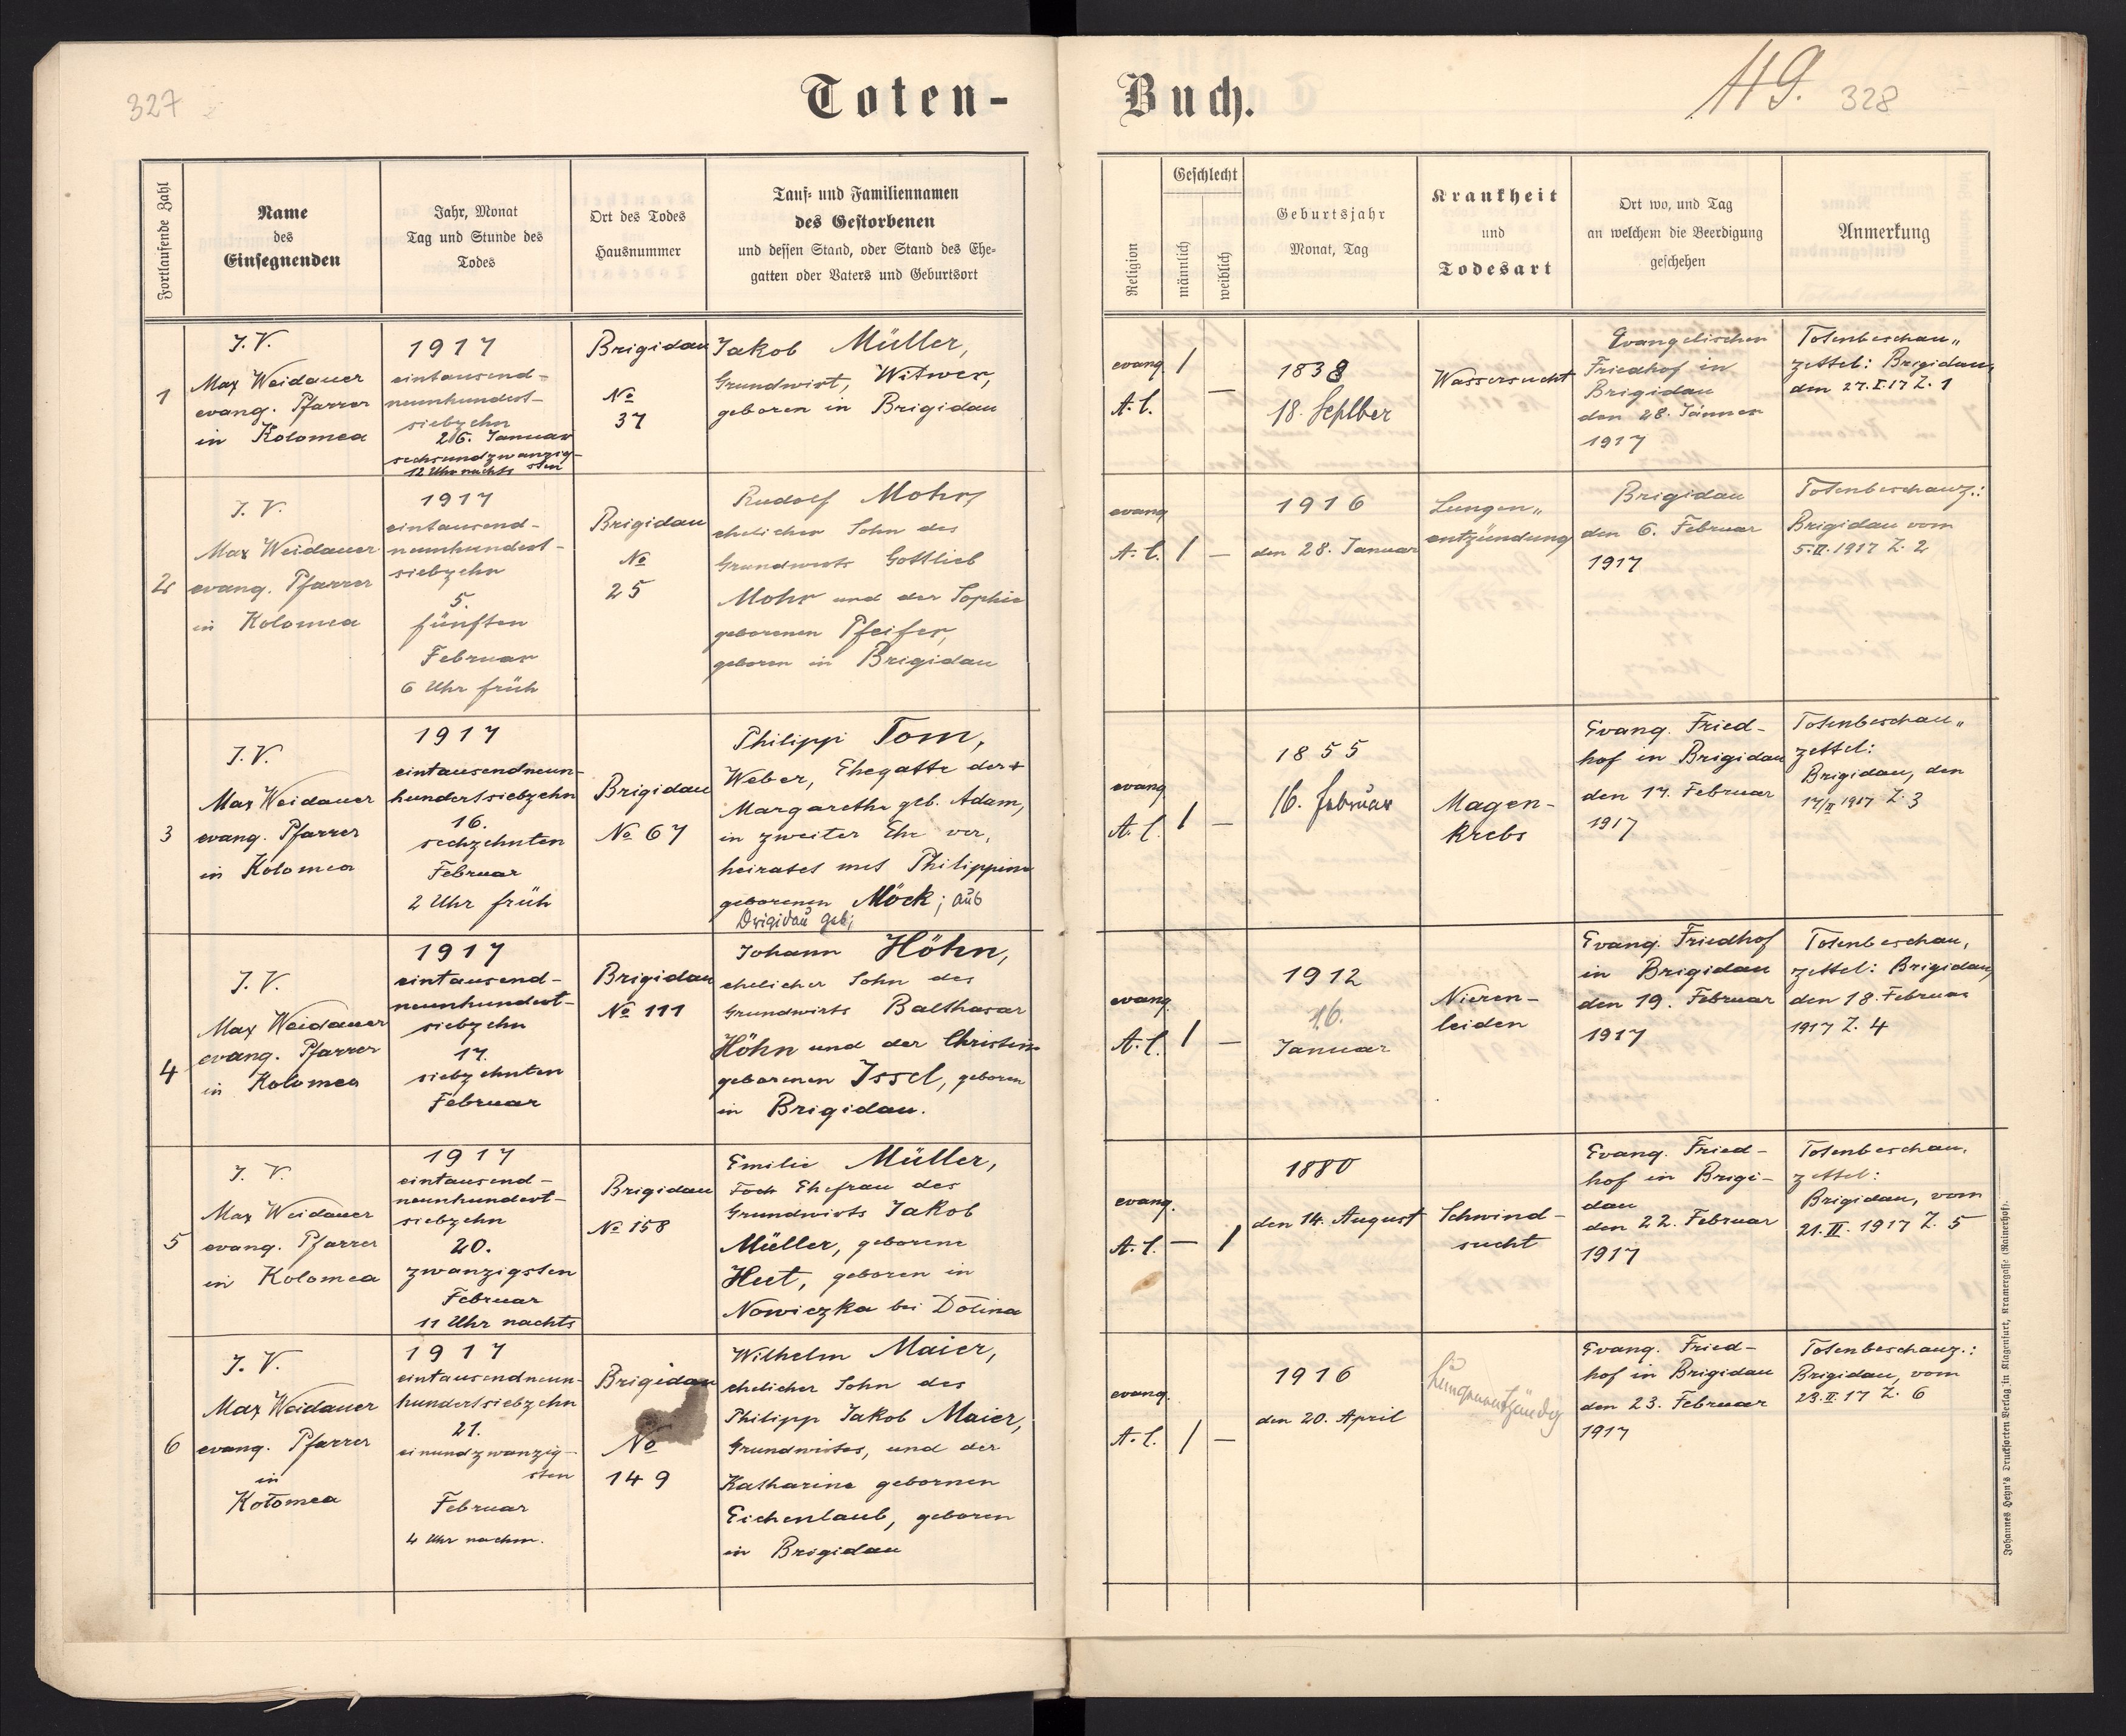 327
Toten-
Buch.
119.
328
Fortlaufende Zahl
Name
des
Einsegnenden
Jahr, Monat
Tag und Stunde des
Todes
Ort des Todes
Hausnummer
Tauf- und Familiennamen
des Gestorbenen
und dessen Stand, oder Stand des Ehe-
gatten oder Vaters und Geburtsort
Religion
Geschlecht
männlich
weiblich
Geburtsjahr
Monat, Tag
Krankheit
und
Todesart
Ort wo, und Tag
an welchem die Beerdigung
geschehen
Anmerkung
1
I. V.
Max Weidauer
evang. Pfarrer
in Kolomea
1917
eintausend-
neunhundert-
siebzehn
26. Januar
sechsundzwanzig-
sten
12 Uhr nachts
Brigidau
No
37
Jakob Müller,
Grundwirt, Witwer,
geboren in Brigidau
evang.
A. C.
/
—
1838
18. Septber
Wassersucht
Evangelischen
Friedhof in
Brigidau
den 28. Jänner
1917
Totenbeschau„
zettel: Brigidau,
den 27. I. 17 Z. 1
2
I. V.
Max Weidauer
evang. Pfarrer
in Kolomea
1917
eintausend-
neunhundert-
siebzehn
5.
fünften
Februar
6 Uhr früh
Brigidau
No
25
Rudolf Mohr,
ehelicher Sohn des
Grundwirts Gottlieb
Mohr und der Sophie
geborenen Pfeifer,
geboren in Brigidau
evang
A. C.
/
—
1916
den 28. Januar
Lungen„
entzündung
Brigidau
den 6. Februar
1917
Totenbeschauz.:
Brigidau vom
5. II. 1917 Z. 2
3
I. V.
Max Weidauer
evang. Pfarrer
in Kolomea
1917
eintausendneun-
hundertsiebzehn
16.
sechzehnten
Februar
2 Uhr früh
Brigidau
No 67
Philipp Tom,
Weber, Ehegatte der +
Margarethe geb. Adam,
in zweiter Ehe ver„
heiratet mit Philippine
geborenen Möck; aus
Brigidau geb;
evang
A. C.
/
—
1855
16. Februar
Magen-
krebs
Evang. Fried-
hof in Brigidau
den 17. Februar
1917
Totenbeschau„
zettel:
Brigidau, den
17/II 1917 Z. 3
4
I. V.
Max Weidauer
evang. Pfarrer
in Kolomea
1917
eintausend-
neunhundert-
siebzehn
17.
siebzehnten
Februar
Brigidau
No 111
Johann Höhn,
ehelicher Sohn des
Grundwirts Balthasar
Höhn und der Christine
geborenen Issel, geboren
in Brigidau.
evang.
A. C.
/
—
1912
16.
Januar
Nieren-
leiden
Evang. Friedhof
in Brigidau
den 19. Februar
1917
Totenbeschau„
zettel: Brigidau,
den 18. Februar
1917 Z. 4
5
I. V.
Max Weidauer
evang. Pfarrer
in Kolomea
1917
eintausend-
neunhundert-
siebzehn
20.
zwanzigsten
Februar
11 Uhr nachts
Brigidau
No 158
Emilie Müller,
Ehefrau des
Grundwirts Jakob
Müller, geborene
Hut, geboren in
Nowiczka bei Dolina
evang.
A. C.
—
/
1880
den 14. August
Schwind-
sucht
Evang. Fried-
hof in Brigi-
dau
den 22. Februar
1917
Totenbeschau„
zettel:
Brigidau, vom
21. II. 1917 Z. 5
6
I. V.
Max Weidauer
evang. Pfarrer
in
Kolomea
1917
eintausendneun-
hundertsiebzehn
21.
einundzwanzig-
sten
Februar
4 Uhr nachm.
Brigidau
No
149
Wilhelm Maier,
ehelicher Sohn des
Philipp Jakob Maier,
Grundwirtes, und der
Katharina gebornen
Eichenlaub, geboren
in Brigidau
evang.
A. C.
/
—
1916
den 20. April
Evang. Fried-
hof in Brigidau
den 23. Februar
1917
Totenbeschauz.:
Brigidau, vom
23. II. 17 Z. 6
Johannes Heyn's Drucksorten Verlag in Klagenfurt, Kramergasse (Rainerhof).